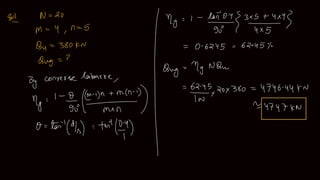 N = 20
m = 4, n = 5
Qu = 380 kN
Qug = ?
By converse labarre,
ηg = 1 - θ/90° { (m-1)n + m(n-1) / m×n }
θ = tan⁻¹(d/s) = tan⁻¹(0.4/1)
ηg = 1 - tan⁻¹0.4/90° { 3×5 + 4×4 / 4×5 }
= 0.6245 = 62.45%
Qug = ηg N Qu
= 62.45/100 × 20 × 380 = 4746.44 kN
≈ 4747 kN